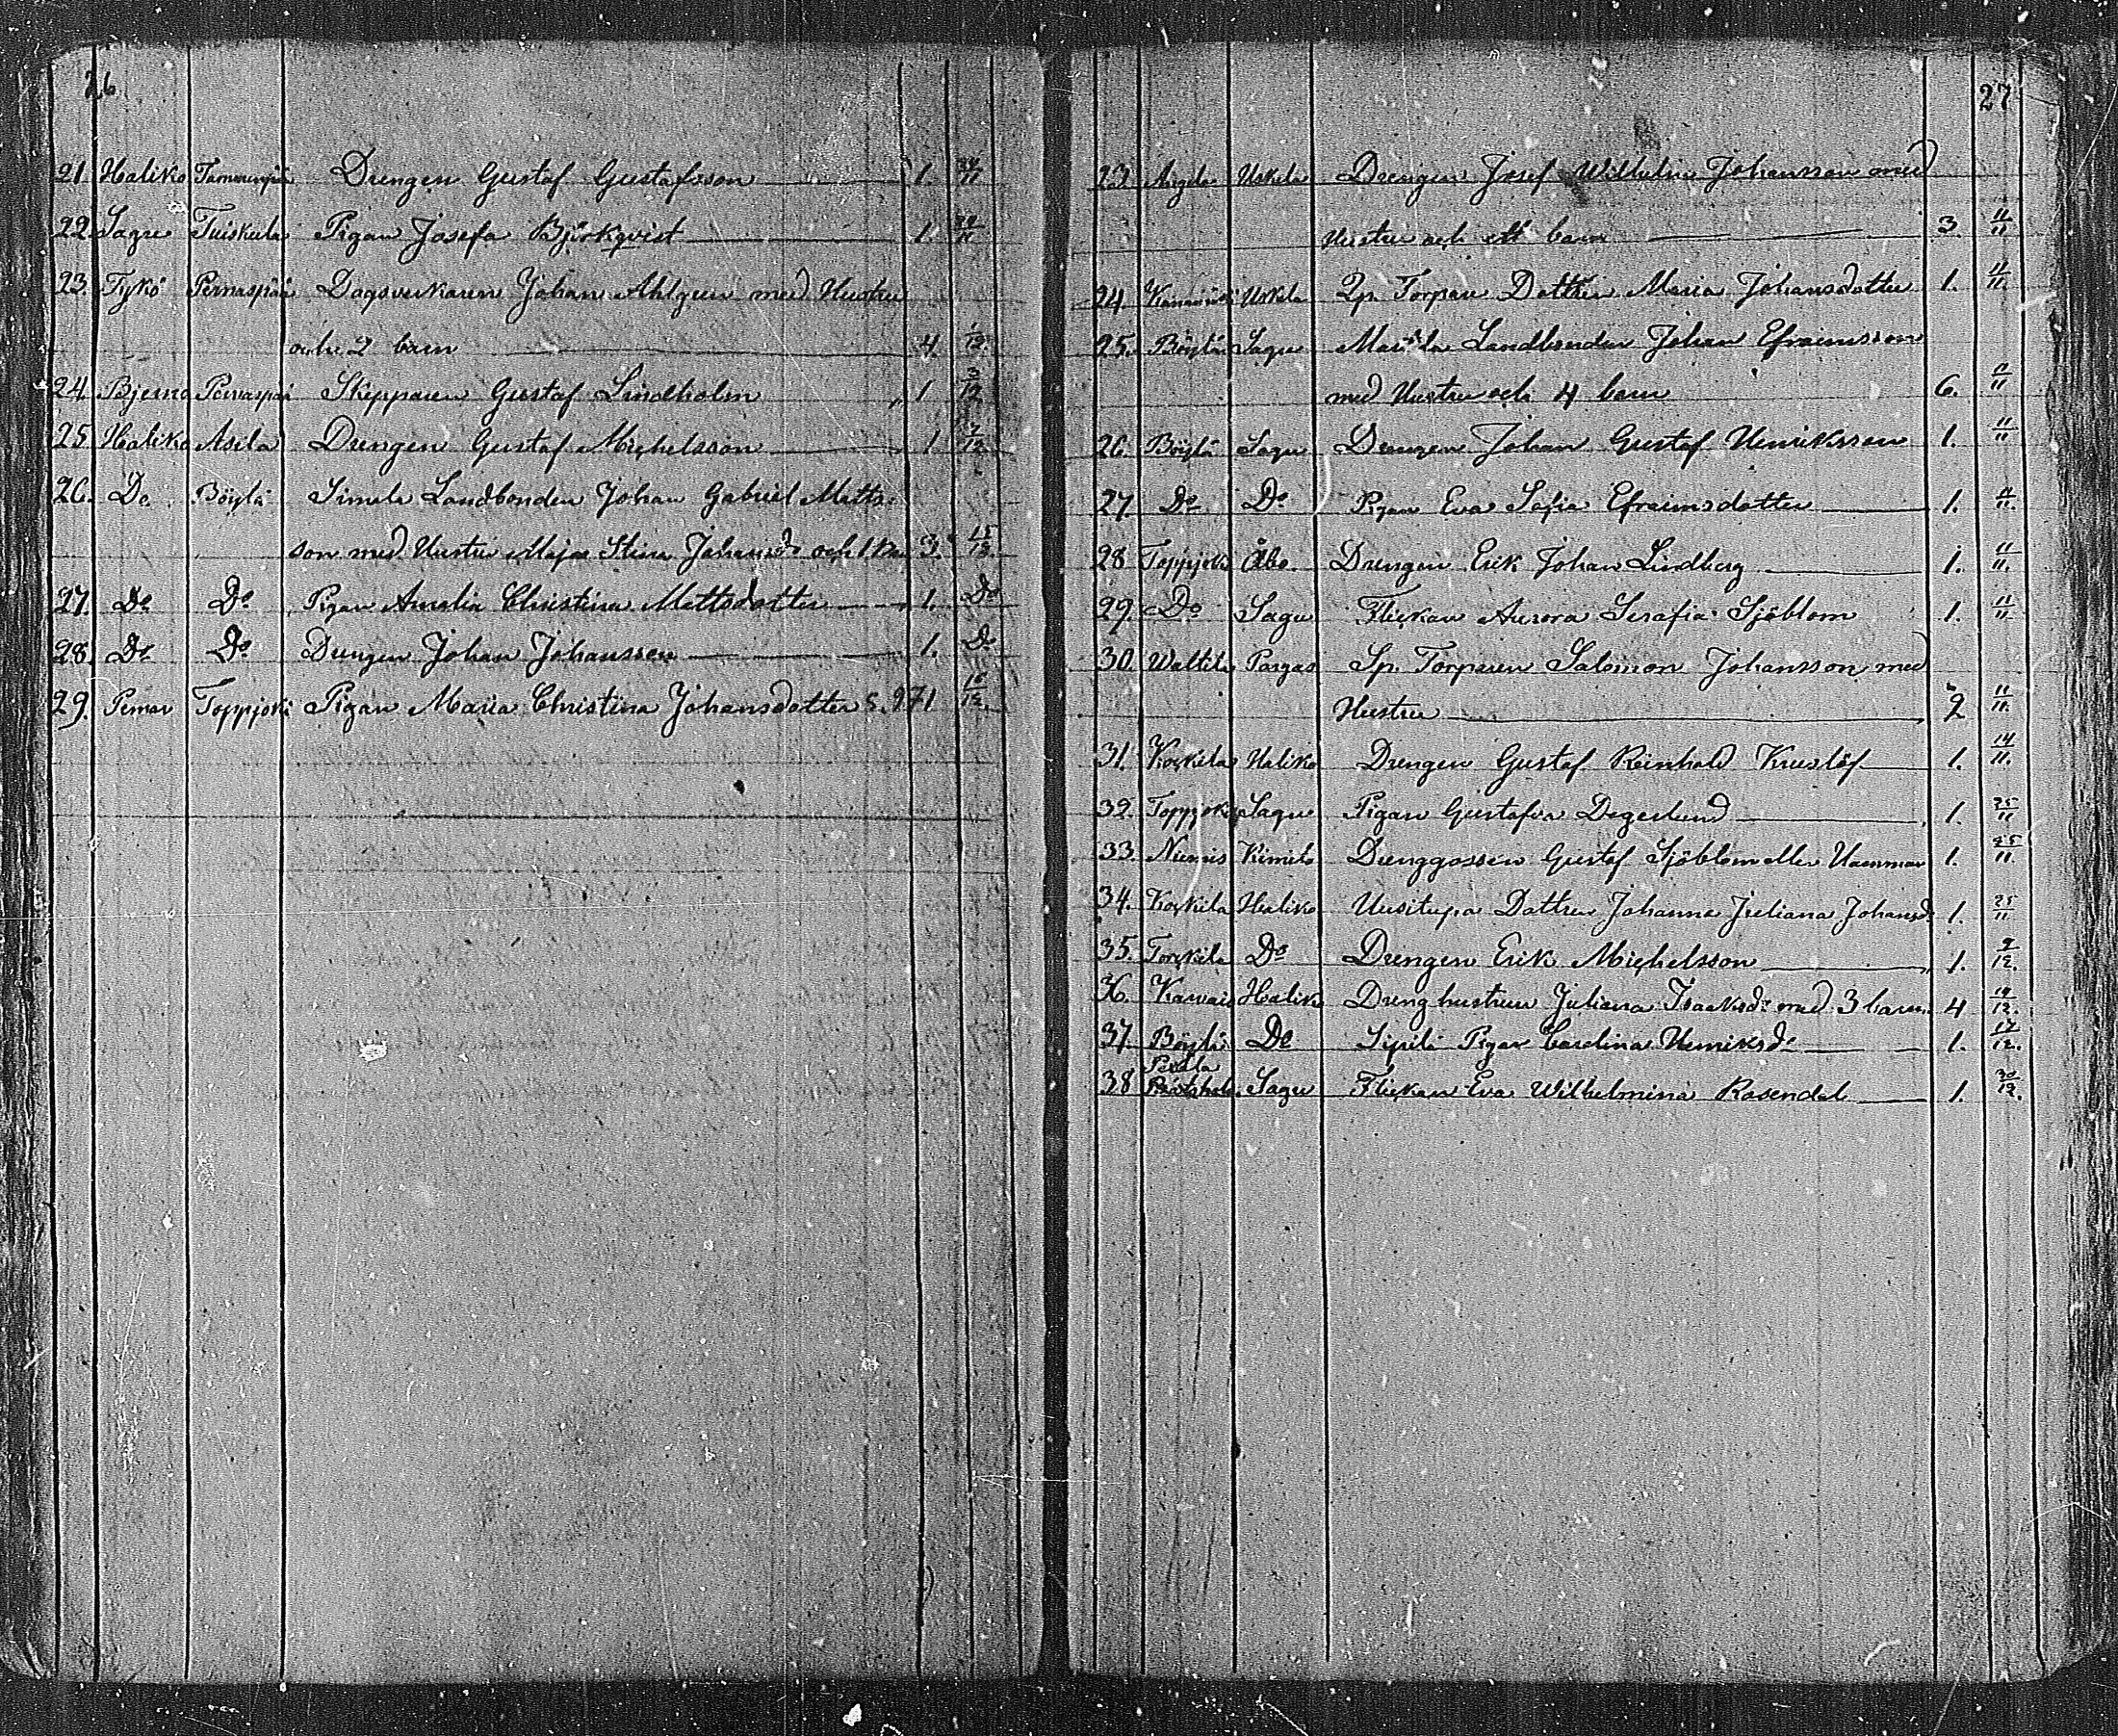 26
21. Haliko Tammenpää Drengen Gustaf Gustafsson 1. 24/11
22. Sagu Tuiskula Pigan Josefa Björkqvist 1. 29/11
23. Tykö Pernaspää Dagsverkaren Johan Ahlgren med Hustru
och 2 barn 4. 1/12.
24. Bjerno Pernaspää Skepparen Gustaf Lindholm 1 3/12
25 Haliko Asila Drengen Gustaf Michelsson 1 7/12
26. Do Böylä Simola Landbonden Johan Gabriel Matts-
son med Hustru Maja Stina Johansd. och 1 Ba. 3. 15/12
27. Do Do Pigan Amalia Christina Mattsdotter 1. Do
28. Do Do Drengen Johan Johansson 1. Do
29. Pemar Toppjoki Pigan Maria Christina Johansdotter S. 97 1 15/12.
27
23 Angela Uskela Drengen Josef Wilhelm Johansson med
Hustru och ett barn 3. 11/11
24 Uskela Torpare Dottren Maria Johansdotter 1. 11/11.
25. Böylä Sagu Landbonden Johan Efraimsson
med Hustru och 4 barn 6. 11/11
26 Böylä Sagu Drengen Johan Gustaf Henriksson 1. 11/11
27. Do Do Pigan Eva Sofia Efraimsdotter 1. 11/11.
28 Toppjoki Åbo Drengen Erik Johan Lindberg 1. 11/11.
29. Do Sagu Flickan Aurora Serafia Sjöblom 1. 11/11
30. Waltila Pargas Sp. Torparen Salomon Johansson med
Hustru 2 11/11.
31. Koskila Haliko Drengen Gustaf Reinhold Kruslöf 1. 14/11.
32. Toppjoki Sagu Pigan Gustafva Degerlund 1. 25/11
33. Niemis Kimito Drenggossen Gustaf Sjöblom eller 1. 25/11.
34. Koskila Haliko Uusitupa Dottren Johanna Juliana Johansd. 1. 25/11
35. Torkkila Do Drengen Erik Michelsson 1. 9/12.
36. Karvais Haliko Drenghustrun Juliana Isaaksd. med 3 barn. 4 19/12.
37. Böylä Do Sipilä Pigan Carolina Henriksd. 1. 17/12.
38 Sagu Flickan Eva Wilhelmina Rosendal 1. 30/12.